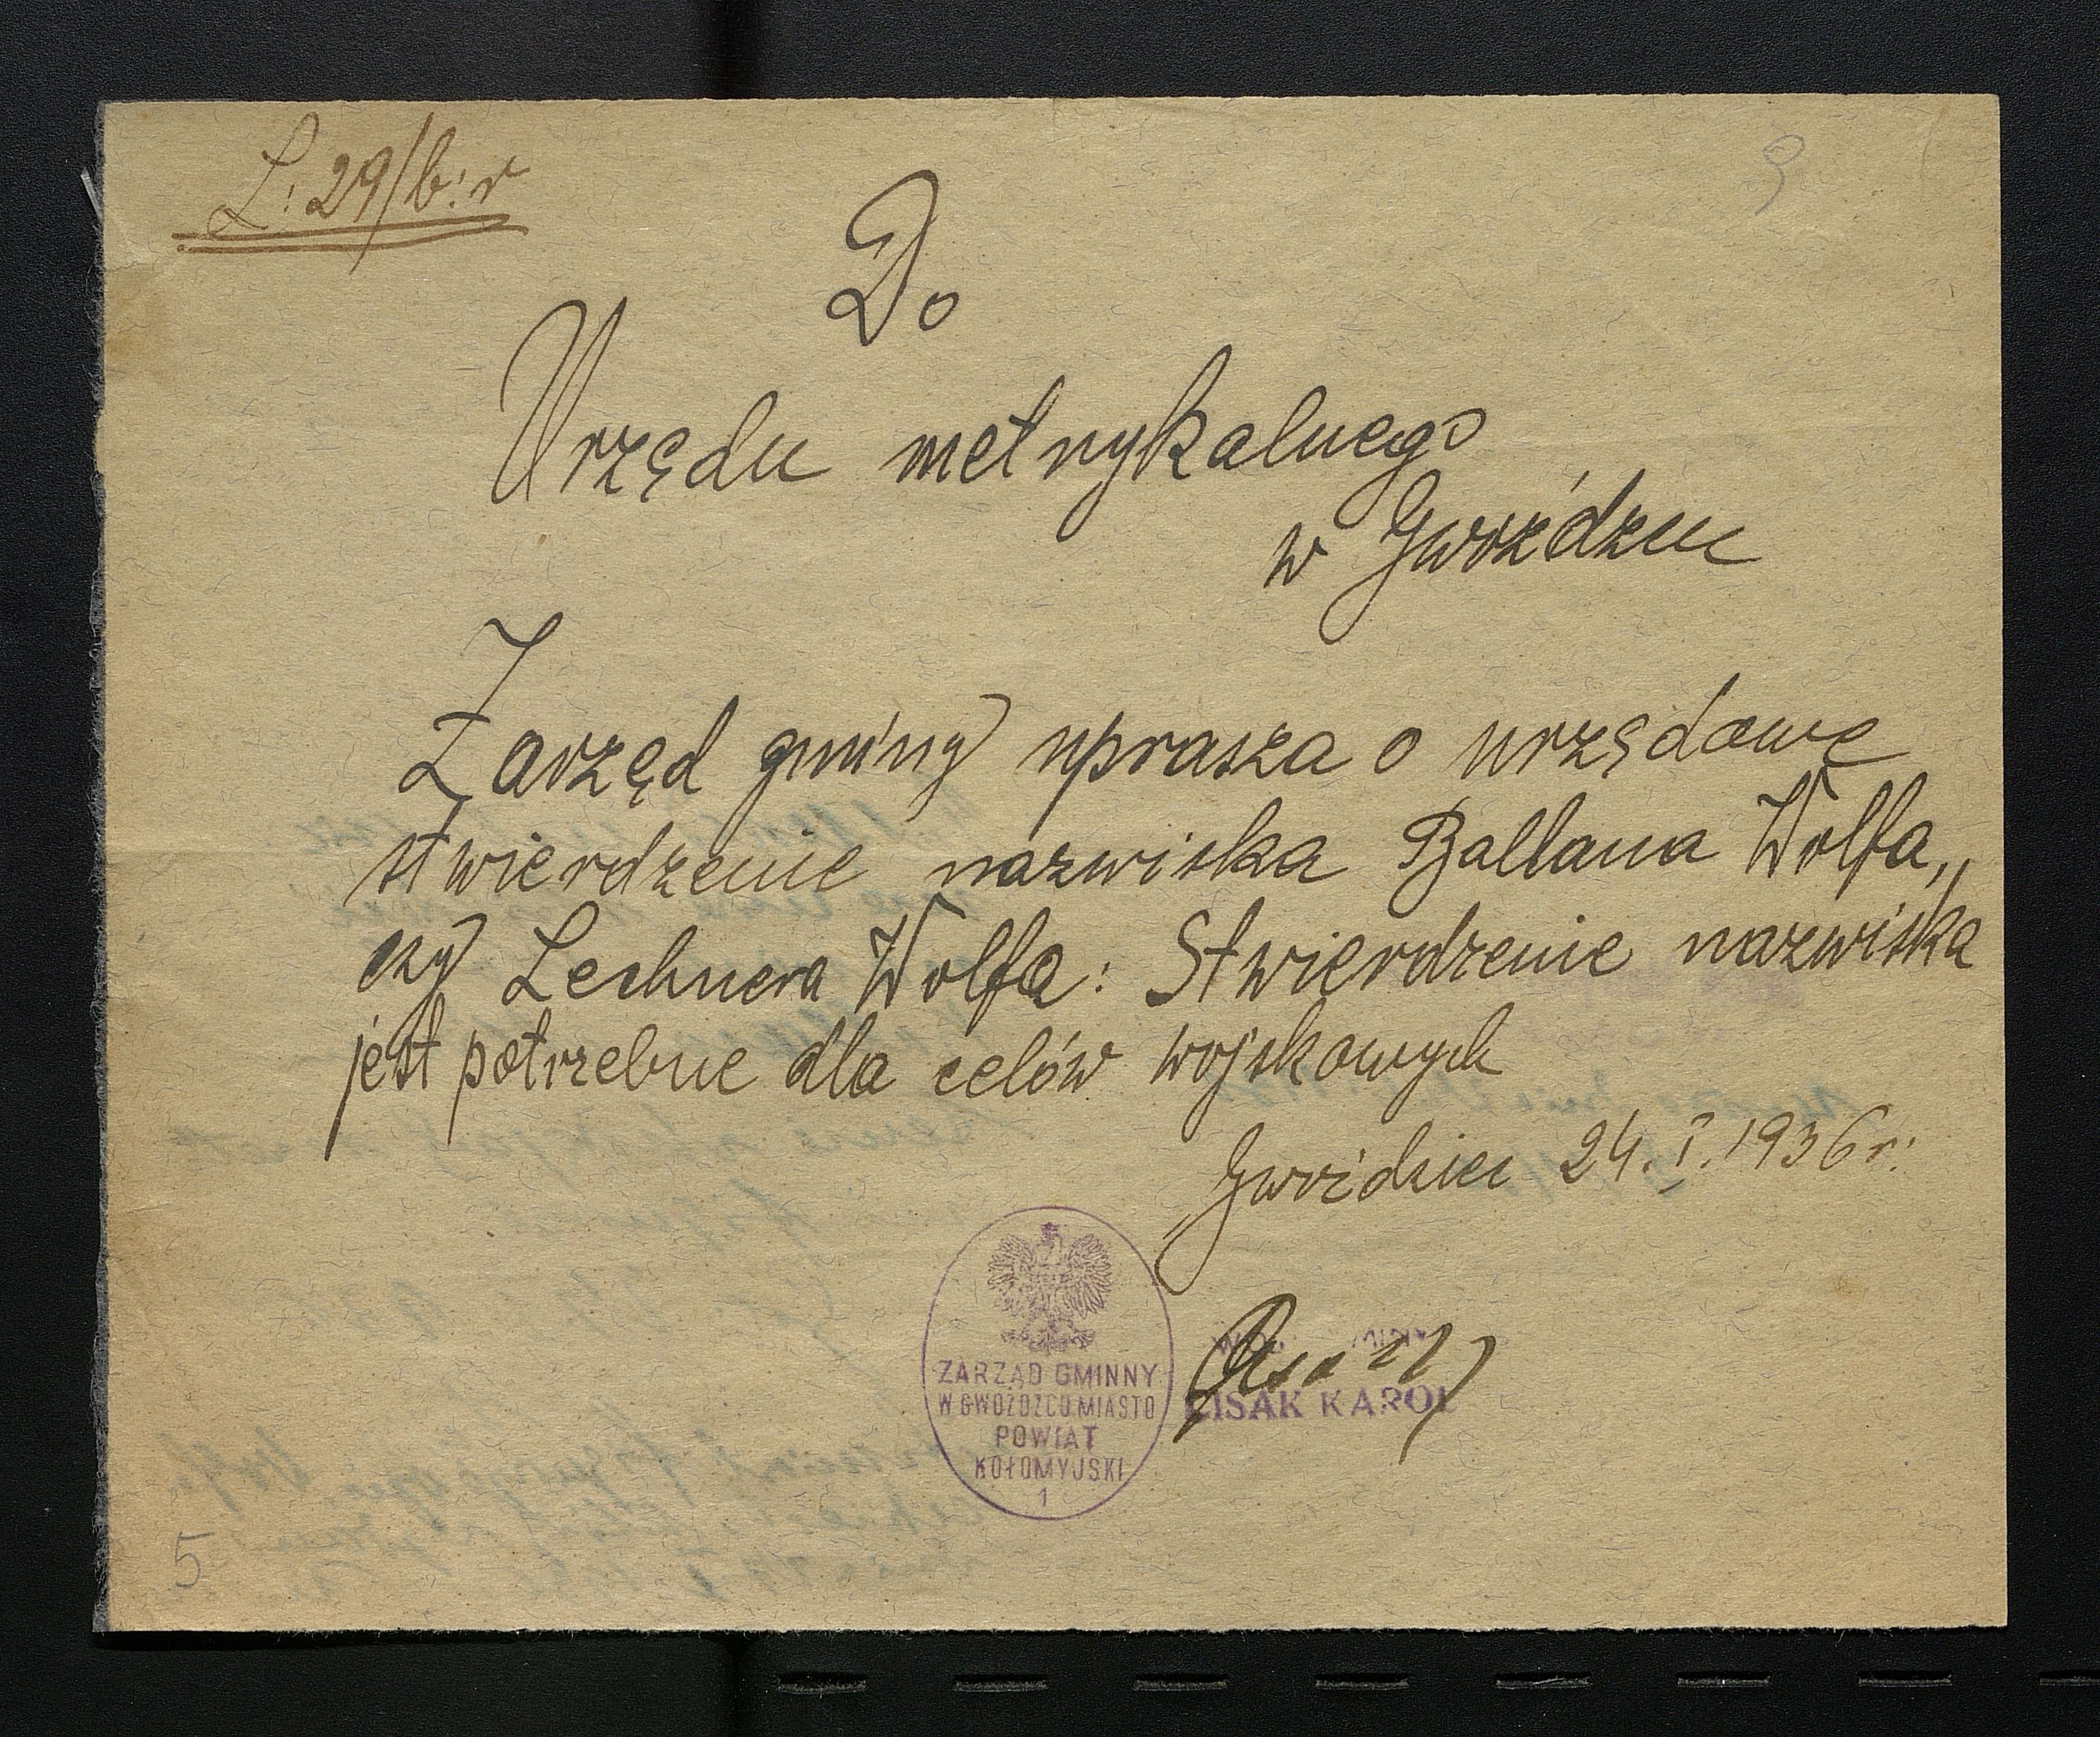 L: 29/b:r
9
Do
Urzędu metrykalnego
w Gwoźdzcu
Zarzęd gminy uprasza o urzędowe
stwierdzenie nazwiska Ballana Wolfa,
czy Lechnera Wolfa: Stwierdzenie nazwiska
jest potrzebne dla celów wojskowych
Gwoździec 24.I.1936 r.
ZARZĄD GMINNY
W GWOŹDŹCU MIASTO
POWIAT
KOŁOMYJSKI
1
CISAK KAROL
5